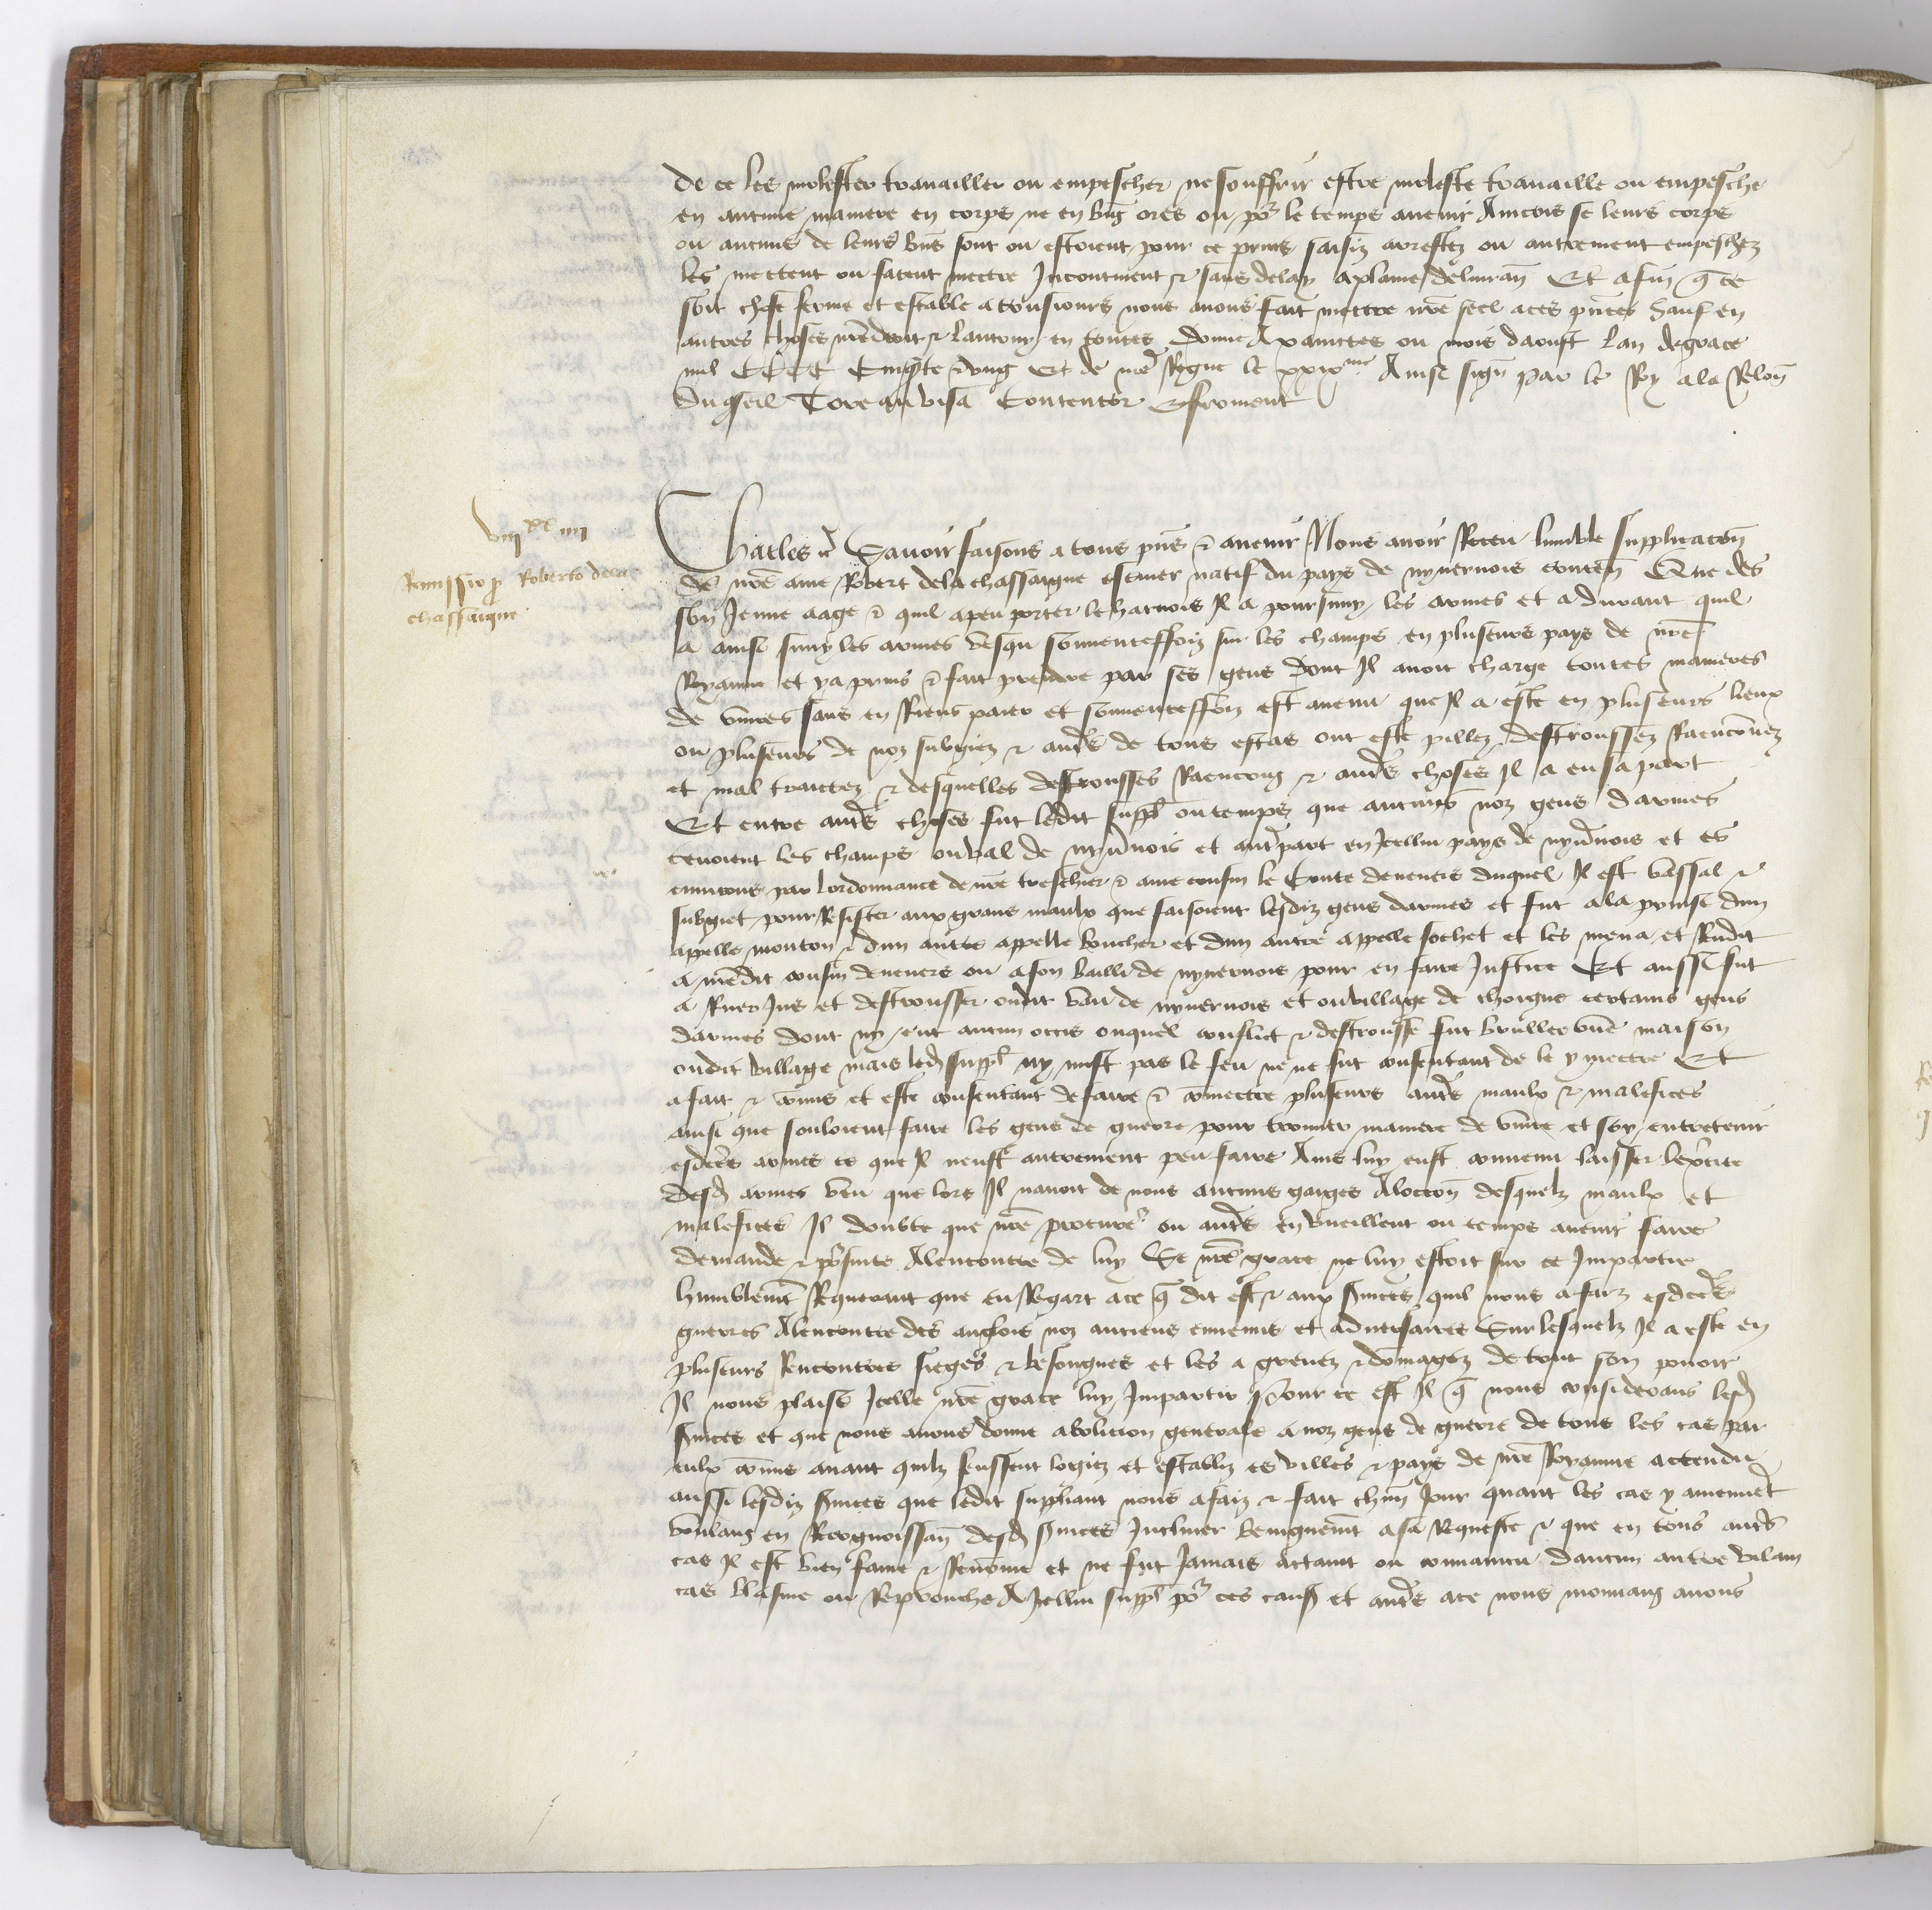 de ce les molester travailler ou empescher ne souffrir estre moleste travaille ou empesche
en aucune maniere en corps ne en bns ores ou pour le temps avenir Aincois se leurs corps
ou aucuns de leurs bns sont ou estoient pour ce prins saisiz arrestez ou autrement empeschez
les mettent ou facent mettre Incontinent et sans delay a plaine delivran Et afin q ce
soit chose ferme et estable a tousiours nous avons fait mettre nre seel a ces pntes Sauf en
autres choses nre droit et lautruy en toutes Donne A xainctes ou mois daoust Lan de grace
mil CCCC Cinqte et ung Et de nre Regne le xxixme Ainsi sign Par le Roy a la Relon
du conseil Toreau visa Contentor E froment
viii xx iiii
Remissio p Roberto de la
chassaigne
Charles et Savoir faisons a tous pns et avenir Nous avoir Receu lumble supplicacon
de nre ame Robert de la chassaigne escuier natif du pays de nyvernois conten Que des
son Jeune aage et quil a peu porter le harnois Il a poursuuy les armes et a durant quil
a ainsi suuy les armes vesqu souventeffoiz sur les champs en pluseurs pays de nre
Royaume et y a prins et fait prendre par ses gens dont Il avoit charge toutes manieres
de vivres sans en Riens paier et souventeffoiz est avenu que Il a este en pluseurs lieux
ou pluseurs de noz subgiez et autres de tous estas ont este pillez destroussez Raenconnez
et mal traictez et desquelles destrousses Raencons et autres choses Il a eu sa part
Et entre autres choses fut ledit suppl ou temps que aucuns noz gens darmes
tenoient les champs ou val de nyvernois et autrepart en Icellui pays de nyvernois et es
environs par lordonnance de nre treschier et ame cousin le Conte de nevers duquel Il est vassal et
subgiet pour Resister aux grans maulx que faisoient lesdiz gens darmes et fut a la prinse dun
appelle mouton et dun autre appelle boucher et dun autre appelle sochet et les mena et Rendit
a nredit cousin de nevers ou a son bailli de nyvernois pour en faire Justice Et aussi fut
a Ruer Jus et destrousser oudit vau de nyvernois et ou village de choigne certains gens
darmes dont ny eut aucun occis ouquel conflict et destrousse fut brullee une maison
oudit village mais led suppl ny mist pas le feu ne ne fut consentant de le y mettre Et
a fait et comis et este consentant de faire et comettre pluseurs autres maulx et malefices
ainsi que souloient faire les gens de guerre pour trouver maniere de vivre et soy entretenir
esdictes armes ce que Il neust autrement peu faire Ains luy eust convenu laisser lexcite
desd armes veu que lors Il navoit de nous aucuns gaiges Aloccon desquelz maulx et
malefices Il doubte que nre procureur ou autres en vueillent ou temps avenir faire
demande et poursuite Alencontre de luy Se nre grace ne luy estoit sur ce Impartie
humblement Requerant que eu Regart a ce q dit est et aux services quil nous a faiz esdictes
guerres Alencontre des anglois noz anciens ennemis et adversaires Sur lesquelz Il a este en
pluseurs Rencontres sieges et besongnes et les a grevez et domagez de tout son povoir
Il nous plaise Icelle nre grace luy Impartir Pour ce est Il q nous considerans lesd
services et que nous avons donne abolicion generale a noz gens de guerre de tous les cas par
eulx comis avant quilz feussent logiez et establiz es villes et pays de nre Royaume actendu
aussi lesdiz services que ledit suppliant nous a faiz et fait chun Jour quant les cas y aviennet
voulans en Recognoissan desd services Incliner benignemt a sa Requeste et que en tous autres
cas Il est bien fame et Renome et ne fut Jamais actaint ou convaincu daucun autre vilain
cas blasme ou Reprouche A Icellui suppl pour ces causes et autres a ce nous mouvans avons